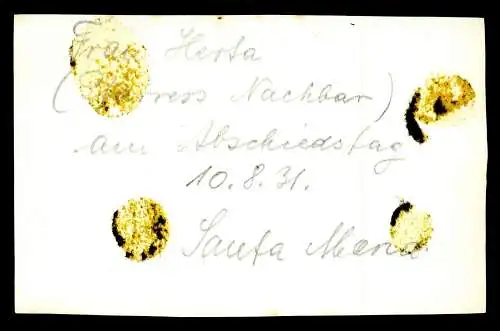 Frau Herta
Nachbar)
am Abschiedstag
10.8.31.
Santa Maria